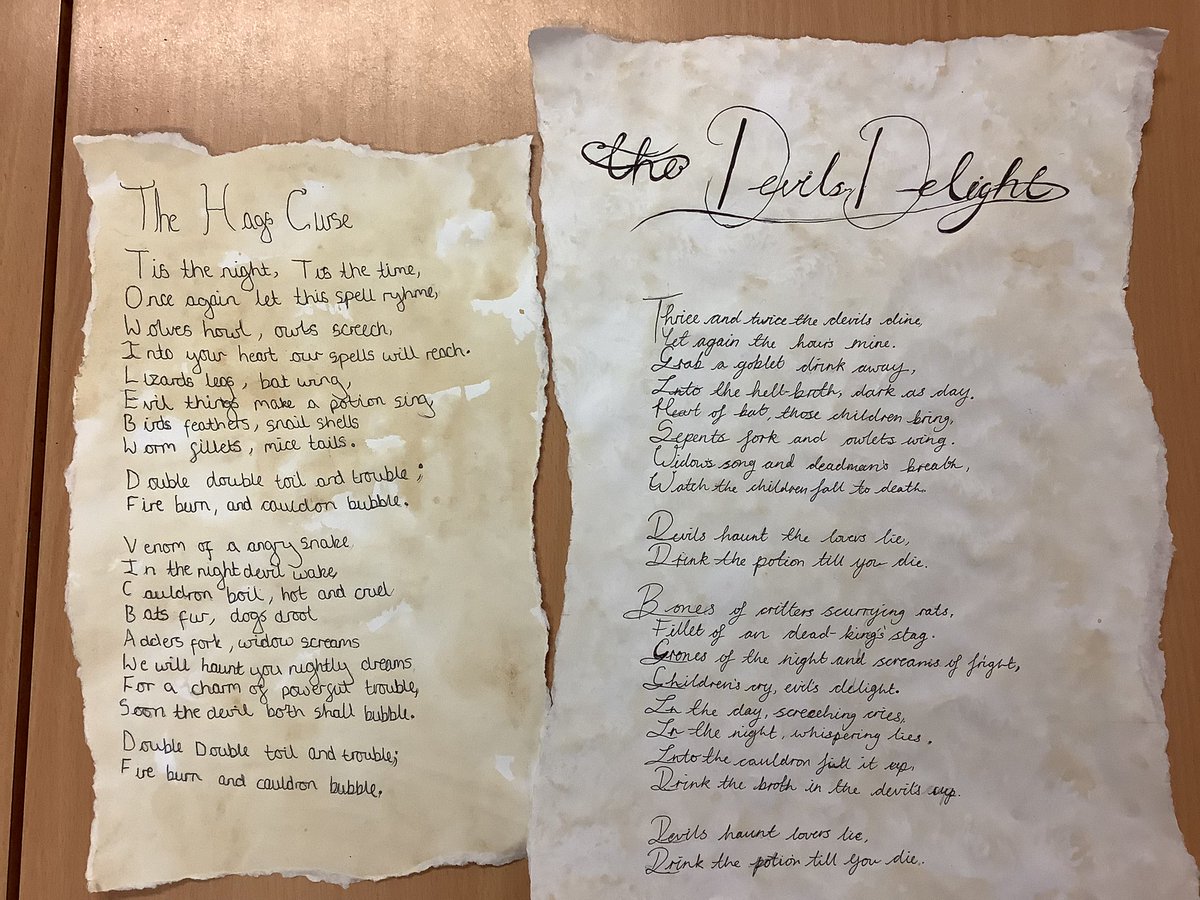 The Hags Curse
Tis the night, Tis the time,
Once again let this spell ryhme,
Wolves howl, owls screech,
Into your heart our spells will reach.
Lizards legs, bat wing,
Evil things make a potion sing
Birds feathers, snail shells
Worm fillets, mice tails.
Double double toil and trouble;
Fire burn, and cauldron bubble.
Venom of a angry snake
In the night devil wake
Cauldron boil, hot and cruel
Bats fur, dogs drool
Adders fork, widow screams
We will haunt you nightly dreams
For a charm of powerfut trouble,
Soon the devil both shall bubble.
Double Double toil and trouble;
Fire burn and cauldron bubble.
the Devils Delight
Thrice and twice the devils dine,
Yet again the hours mine.
Grab a goblet drink away,
Into the hell-broth, dark as day.
Heart of bat, those children bring,
Sepents fork and owlets wing.
Widow's song and deadman's breath,
Watch the children fall to death.
Devils haunt the lovers lie,
Drink the potion till you die.
Bones of critters scurrying rats,
Fillet of an dead-king's stag.
Grones of the night and screams of fright,
Children's cry, evil's delight.
In the day, screeching cries,
In the night, whispering lies.
Into the cauldron full it up,
Drink the broth in the devils cup.
Devils haunt lovers lie,
Drink the potion till you die.